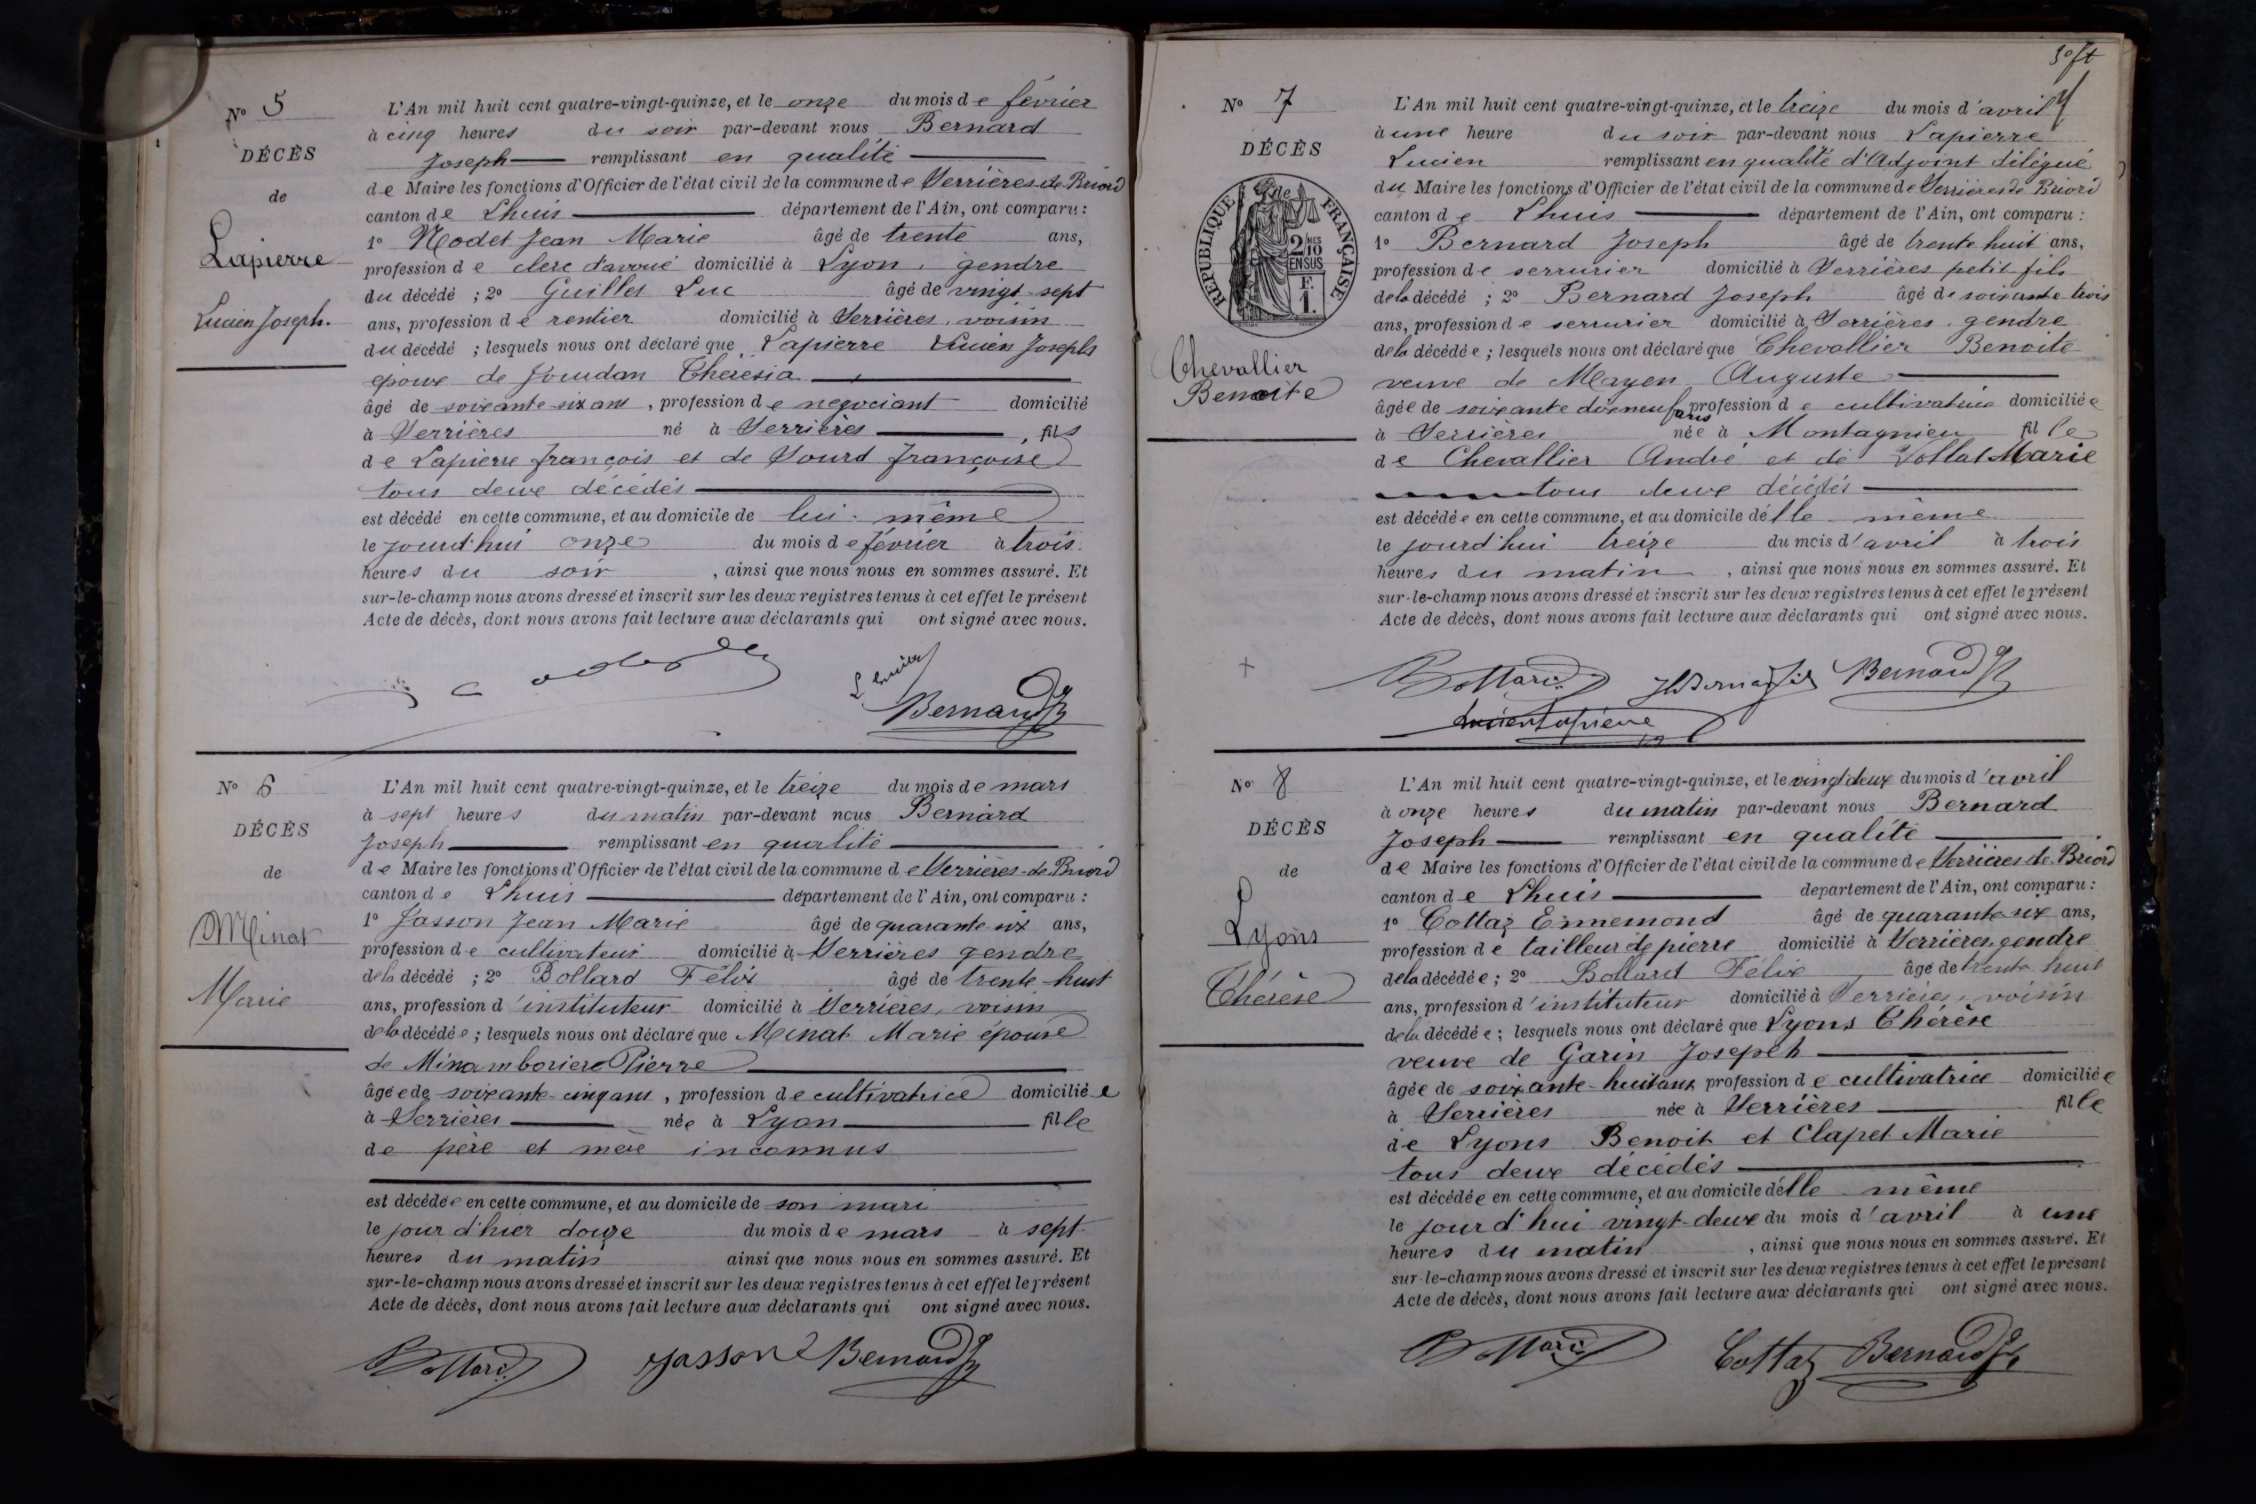 Nº 5
DÉCÈS
de
Lapierre
Lucien Joseph.
L'An mil huit cent quatre-vingt-quinze, et le onze du mois de février
à cinq heures du soir par-devant nous Bernard
Joseph remplissant en qualité
de Maire les fonctions d'Officier de l'état civil de la commune de Serrières de Briord
canton de Lhuis département de l'Ain, ont comparu :
1º Nodet Jean Marie âgé de trente ans,
profession de clerc d'avoué domicilié à Lyon, gendre
du décédé ; 2º Guillet Luc âgé de vingt-sept
ans, profession de rentier domicilié à Serrières, voisin
du décédé ; lesquels nous ont déclaré que Lapierre Lucien Joseph
époux de Jourdan Thérésia
âgé de soixante-six ans, profession de négociant domicilié
à Serrières né à Serrières, fils
de Lapierre françois et de Sourd françoise
tous deux décédés
est décédé en cette commune, et au domicile de lui-même
le jourd'hui onze du mois de février à trois
heures du soir, ainsi que nous nous en sommes assuré. Et
sur-le-champ nous avons dressé et inscrit sur les deux registres tenus à cet effet le présent
Acte de décès, dont nous avons fait lecture aux déclarants qui ont signé avec nous.
Bernard
Nº 6
DÉCÈS
de
Minat
Marie
L'An mil huit cent quatre-vingt-quinze, et le treize du mois de mars
à sept heures du matin par-devant nous Bernard
Joseph remplissant en qualité
de Maire les fonctions d'Officier de l'état civil de la commune de Serrières-de-Briord
canton de Lhuis département de l'Ain, ont comparu :
1º Jasson Jean Marie âgé de quarante six ans,
profession de cultivateur domicilié à Serrières gendre
de la décédé ; 2º Bollard Félix âgé de trente-huit
ans, profession d'instituteur domicilié à Serrières, voisin
de la décédée ; lesquels nous ont déclaré que Minat Marie épouse
de Minamboriere Pierre
âgée de soixante-cinq ans, profession de cultivatrice domiciliée
à Serrières née à Lyon fille
de père et mère inconnus
est décédée en cette commune, et au domicile de son mari
le jour d'hier douze du mois de mars à sept
heures du matin ainsi que nous nous en sommes assuré. Et
sur-le-champ nous avons dressé et inscrit sur les deux registres tenus à cet effet le présent
Acte de décès, dont nous avons fait lecture aux déclarants qui ont signé avec nous.
Bollard Jasson Bernard
Nº 7
DÉCÈS
de
RÉPUBLIQUE FRANÇAISE
2/10MES
EN SUS
F.
1.
Chevallier
Benoite
L'An mil huit cent quatre-vingt-quinze, et le treize du mois d'avril
à une heure du soir par-devant nous Lapierre
Lucien remplissant en qualité d'Adjoint délégué
du Maire les fonctions d'Officier de l'état civil de la commune de Serrières de Briord
canton de Lhuis département de l'Ain, ont comparu :
1º Bernard Joseph âgé de trente huit ans,
profession de serrurier domicilié à Serrières petit fils
de la décédé ; 2º Bernard Joseph âgé de soixante-trois
ans, profession de serrurier domicilié à Serrières gendre
de la décédée ; lesquels nous ont déclaré que Chevallier Benoite
veuve de Mayen Auguste
âgée de soixante dix neuf ans profession de cultivatrice domiciliée
à Serrières née à Montagnieu fille
de Chevallier André et de Vollat Marie
tous deux décédés
est décédée en cette commune, et au domicile d'elle même
le jourd'hui treize du mois d'avril à trois
heures du matin, ainsi que nous nous en sommes assuré. Et
sur-le-champ nous avons dressé et inscrit sur les deux registres tenus à cet effet le présent
Acte de décès, dont nous avons fait lecture aux déclarants qui ont signé avec nous.
Bollard Bernard
Lucien Lapierre
Nº 8
DÉCÈS
de
Lyons
Thérèse
L'An mil huit cent quatre-vingt-quinze, et le vingt deux du mois d'avril
à onze heures du matin par-devant nous Bernard
Joseph remplissant en qualité
de Maire les fonctions d'Officier de l'état civil de la commune de Serrières de Briord
canton de Lhuis département de l'Ain, ont comparu :
1º Cottaz Ennemond âgé de quarante-six ans,
profession de tailleur de pierre domicilié à Serrières, gendre
de la décédée ; 2º Bollard Félix âgé de trente huit
ans, profession d'instituteur domicilié à Serrières, voisin
de la décédée ; lesquels nous ont déclaré que Lyons Thérèse
veuve de Garin Joseph
âgée de soixante-huit ans profession de cultivatrice domiciliée
à Serrières née à Serrières fille
de Lyons Benoit et Clapet Marie
tous deux décédés
est décédée en cette commune, et au domicile d'elle même
le jour d'hui vingt-deux du mois d'avril à une
heures du matin, ainsi que nous nous en sommes assuré. Et
sur-le-champ nous avons dressé et inscrit sur les deux registres tenus à cet effet le présent
Acte de décès, dont nous avons fait lecture aux déclarants qui ont signé avec nous.
Bollard Cottaz Bernard